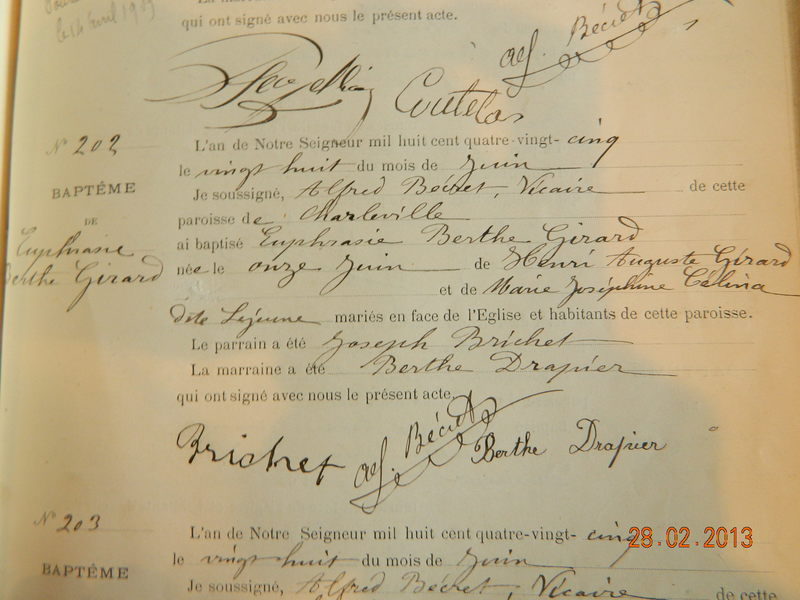 le 14 avril 19
qui ont signé avec nous le présent acte.
alf. Bécret
Coutelas
N° 202
BAPTÊME
DE
Euphrasie
Berthe Girard
L'an de Notre Seigneur mil huit cent quatre-vingt- cinq
le vingt huit du mois de Juin
Je soussigné, Alfred Bécret, Vicaire de cette
paroisse de Charleville
ai baptisé Euphrasie Berthe Girard
née le onze Juin de Henri Auguste Girard
et de Marie Joséphine Célina
dite Lejeune mariés en face de l'Eglise et habitants de cette paroisse.
Le parrain a été Joseph Brichet
La marraine a été Berthe Drapier
qui ont signé avec nous le présent acte.
Brichet alf. Bécret Berthe Drapier
N° 203
BAPTÊME
L'an de Notre Seigneur mil huit cent quatre-vingt- cinq
le vingt huit du mois de Juin
Je soussigné, Alfred Bécret, Vicaire de cette
28.02.2013